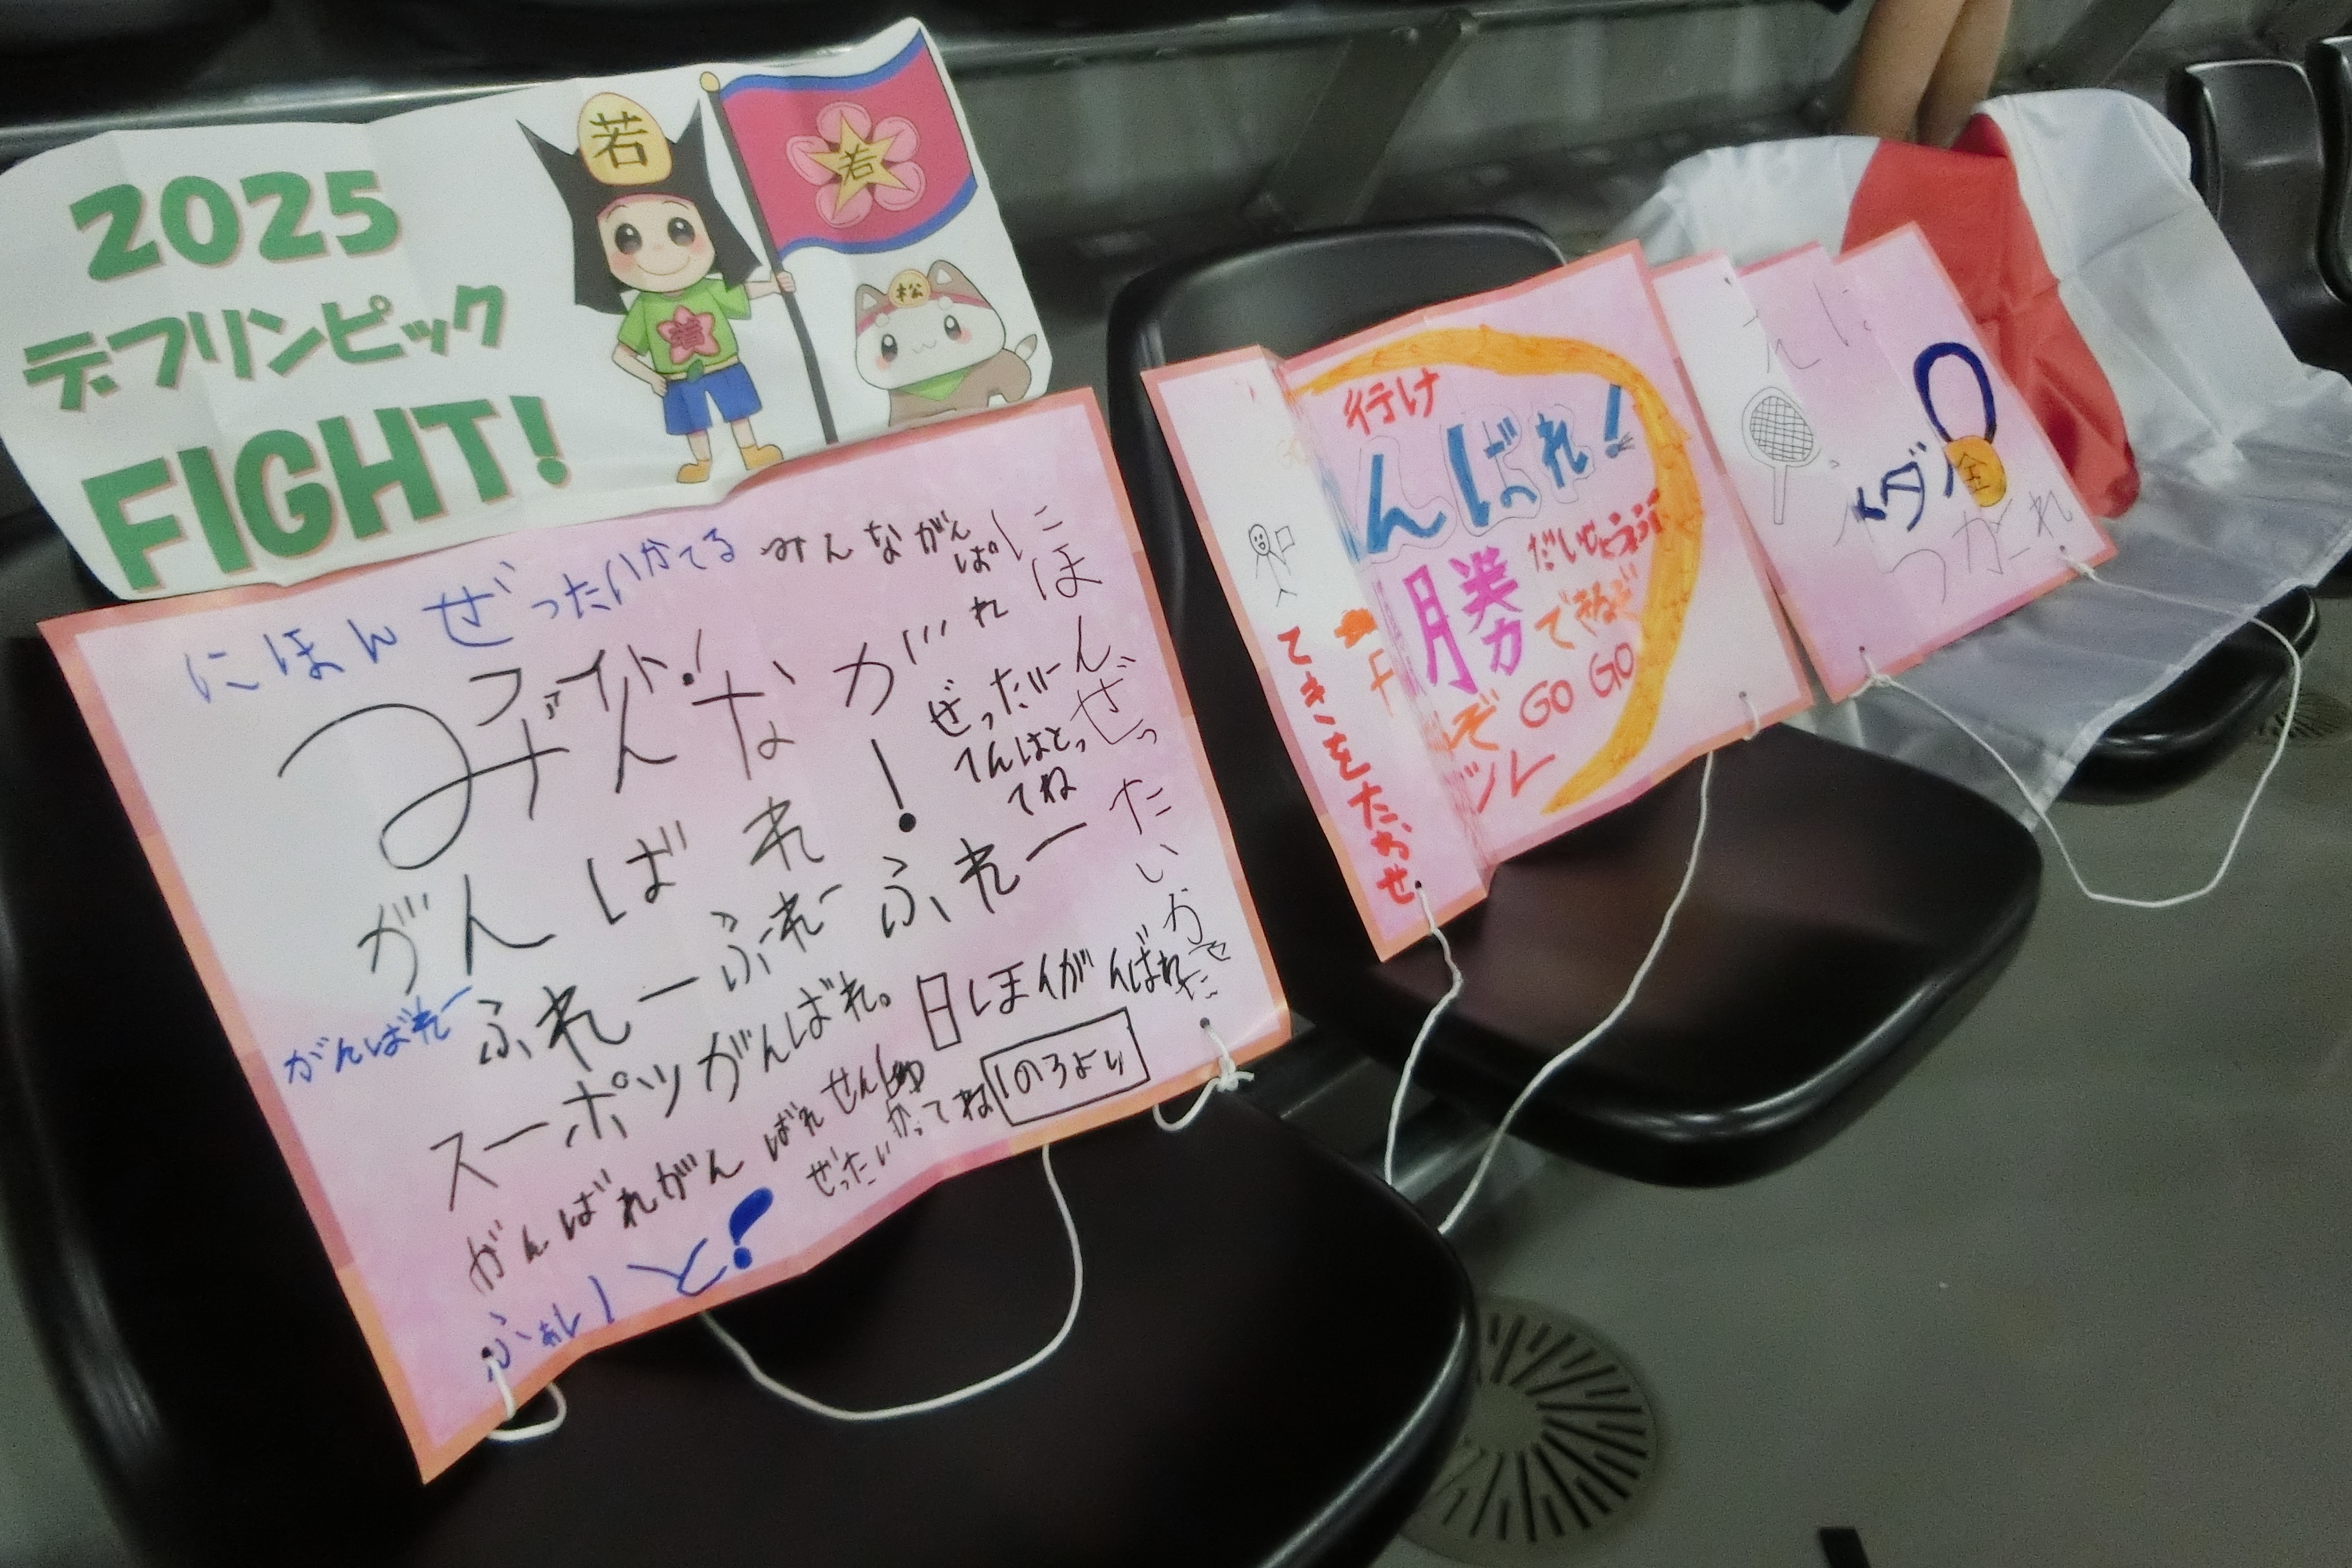 2025
デフリンピック
FIGHT!
若
若
若
松
にほんぜったいかてる
みんながん
ばれ
ファイト!
みんな
がんばれ!
にほんぜったいかせだ
ぜったい
てんはとっ
てね
がんばれー
ふれーふれーふれー
スーポツがんばれ。
日ほんがんばれ
がんばれがんばれせんしゅ
ぜったいかってね
1のろより
ふぁいと!
てきをたおせ
行け
んばれ!
勝
だいじょうぶ
できるぞ
ぞ GO GO
ツレ
金
つがーれ